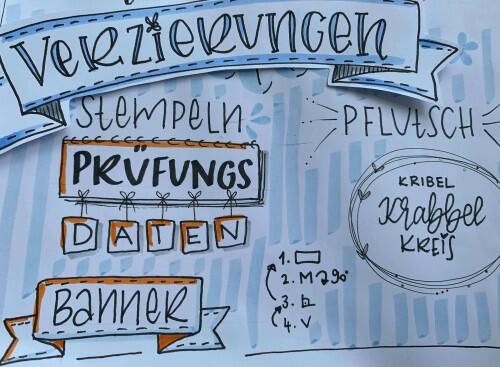 VERZIERUNGEN
STEMPELN
PFLUTSCH
PRÜFUNGS
DATEN
KRIBEL
Krabbel
KREIS
1.
2. M 90°
3.
4. V
BANNER